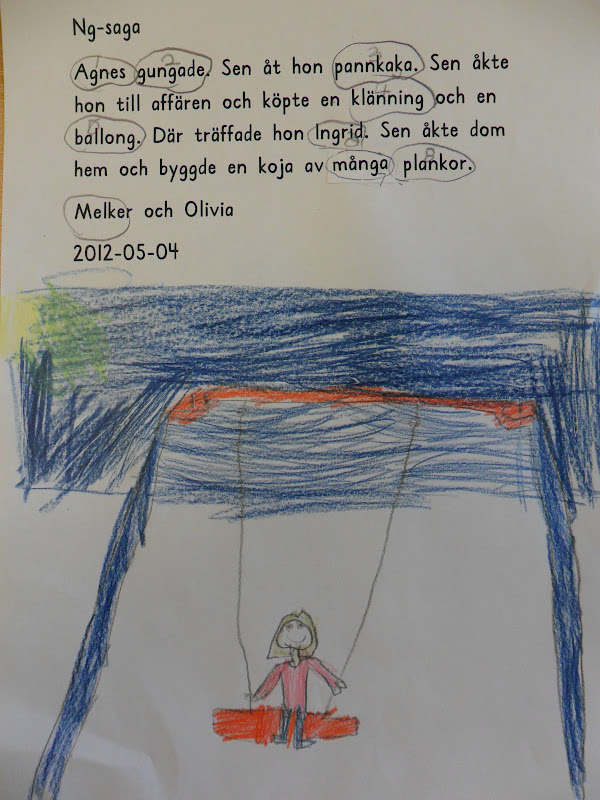 Ng-saga
Agnes gungade. Sen åt hon pannkaka. Sen åkte
hon till affären och köpte en klänning och en
ballong. Där träffade hon Ingrid. Sen åkte dom
hem och byggde en koja av många plankor.
Melker och Olivia
2012-05-04